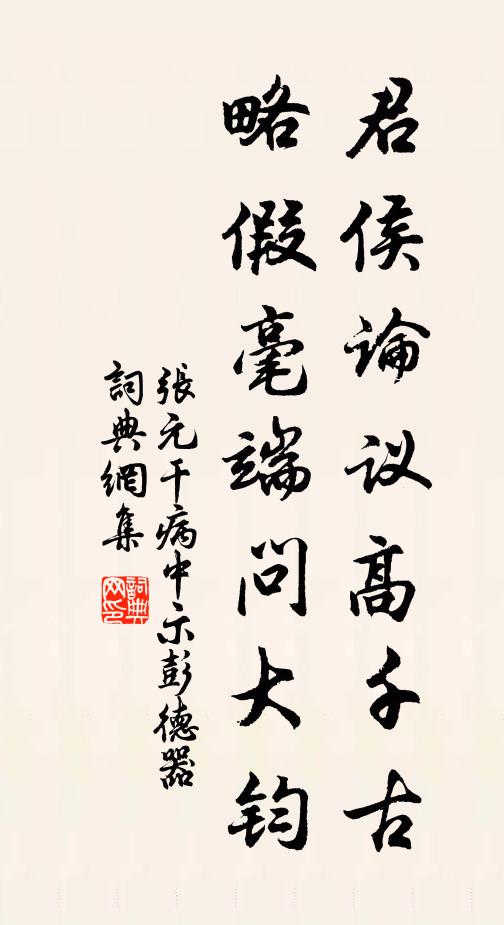 君侯論议高千古
略假毫端問大鈞
張元干病中示彭德器
詞典網集
詞典網印